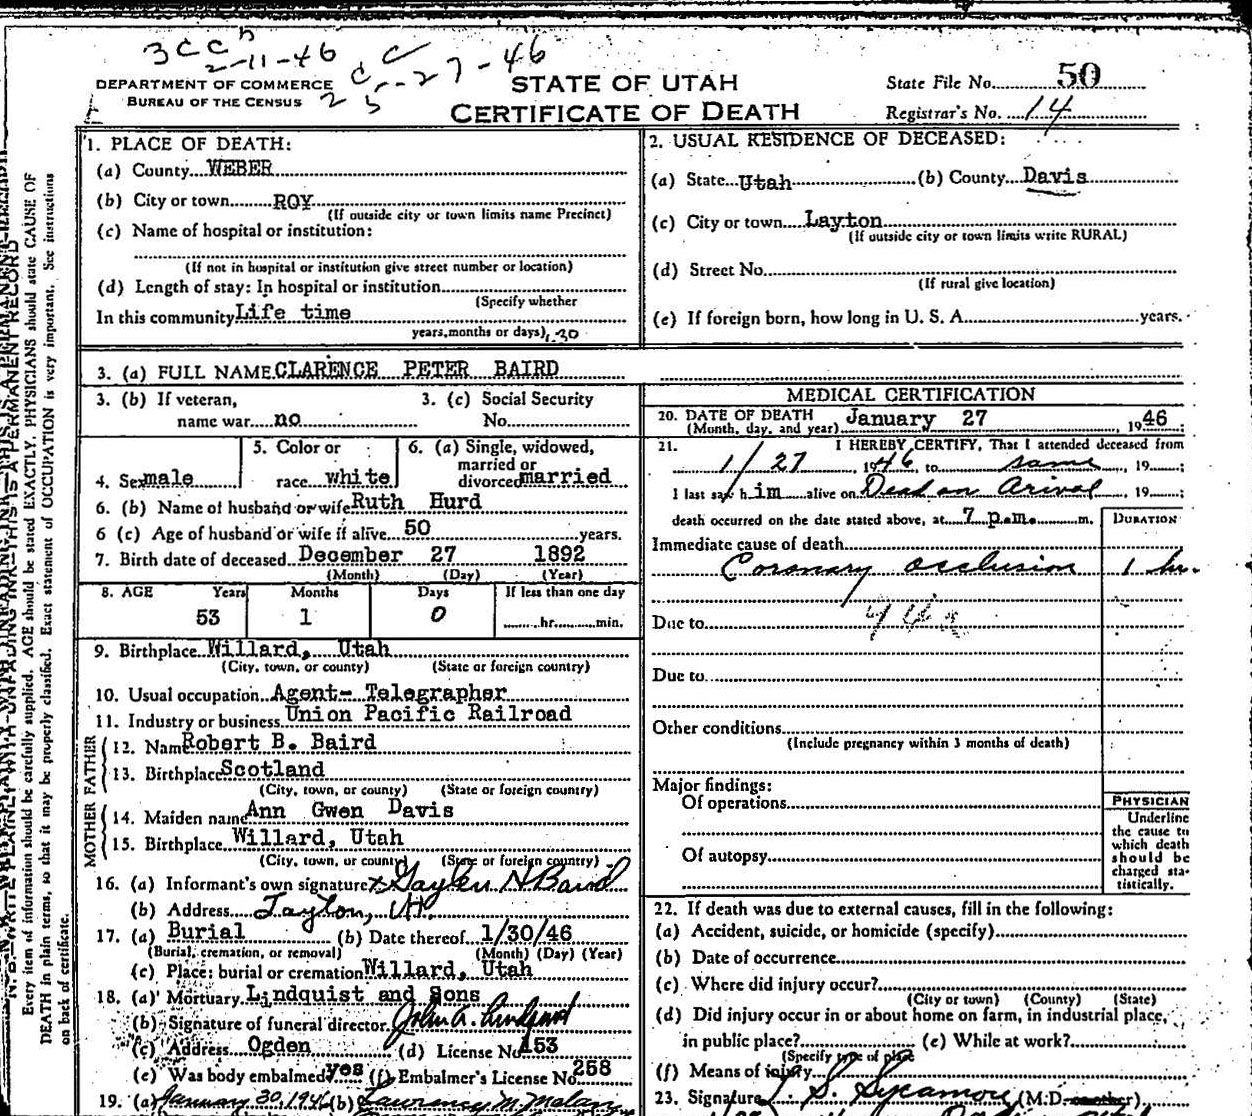 3 C C
2-11-46
C
2-27-46
DEPARTMENT OF COMMERCE
BUREAU OF THE CENSUS
STATE OF UTAH
CERTIFICATE OF DEATH
State File No. 50
Registrar's No. 14
1. PLACE OF DEATH:
(a) County WEBER
(b) City or town ROY
(If outside city or town limits name Precinct)
(c) Name of hospital or institution:
(If not in hospital or institution give street number or location)
(d) Length of stay: In hospital or institution
(Specify whether
In this community Life time
years, months or days)
2. USUAL RESIDENCE OF DECEASED:
(a) State Utah (b) County Davis
(c) City or town Layton
(If outside city or town limits write RURAL)
(d) Street No.
(If rural give location)
(e) If foreign born, how long in U. S. A. years.
3. (a) FULL NAME CLARENCE PETER BAIRD
3. (b) If veteran,
name war no
3. (c) Social Security
No.
4. Sex male
5. Color or
race white
6. (a) Single, widowed,
married or
divorced married
6. (b) Name of husband or wife Ruth Hurd
6 (c) Age of husband or wife if alive 50 years.
7. Birth date of deceased December 27 1892
(Month) (Day) (Year)
8. AGE Years Months Days If less than one day
53 1 0 hr. min.
9. Birthplace Willard, Utah
(City, town, or county) (State or foreign country)
10. Usual occupation Agent- Telegrapher
11. Industry or business Union Pacific Railroad
FATHER
12. Name Robert B. Baird
13. Birthplace Scotland
(City, town, or county) (State or foreign country)
MOTHER
14. Maiden name Ann Gwen Davis
15. Birthplace Willard, Utah
(City, town, or county) (State or foreign country)
16. (a) Informant's own signature x Gaylen H Baird
(b) Address Layton, Ut.
17. (a) Burial (b) Date thereof 1/30/46
(Burial, cremation, or removal) (Month) (Day) (Year)
(c) Place: burial or cremation Willard, Utah
18. (a) Mortuary Lindquist and Sons
(b) Signature of funeral director John A. Lindquist
(c) Address Ogden (d) License No 153
(e) Was body embalmed yes (f) Embalmer's License No. 258
19. (a) January 30, 1946 (b) Lawrency M. Malan
MEDICAL CERTIFICATION
20. DATE OF DEATH January 27 1946
(Month, day, and year)
21. I HEREBY CERTIFY, That I attended deceased from
1/27, 1946, to same, 19 ;
I last saw him alive on Dead on Arival, 19 ;
death occurred on the date stated above, at 7 p.m. m.
DURATION
Immediate cause of death
Coronary occlusion 1 hr.
Due to
Due to
Other conditions
(Include pregnancy within 3 months of death)
Major findings:
Of operations
Of autopsy
PHYSICIAN
Underline
the cause to
which death
should be
charged sta-
tistically.
22. If death was due to external causes, fill in the following:
(a) Accident, suicide, or homicide (specify)
(b) Date of occurrence
(c) Where did injury occur?
(City or town) (County) (State)
(d) Did injury occur in or about home on farm, in industrial place,
in public place? (e) While at work?
(Specify type of place
(f) Means of injury
23. Signature S. Sycamore (M.D. or other)
Every item of information should be carefully supplied. AGE should be stated EXACTLY. PHYSICIANS should state CAUSE OF
DEATH in plain terms, so that it may be properly classified. Exact statement of OCCUPATION is very important. See instructions
on back of certificate.